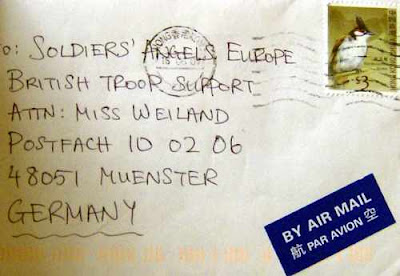 TO: SOLDIERS' ANGELS EUROPE
BRITISH TROOP SUPPORT
ATTN: MISS WEILAND
POSTFACH 10 02 06
48051 MUENSTER
GERMANY
$3
BY AIR MAIL
航 PAR AVION 空